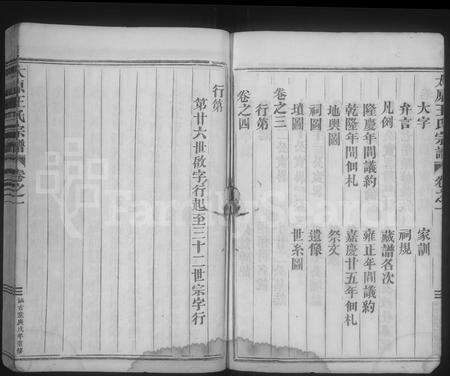 太原王氏宗譜 卷之一
大字 家訓
弁言 祠規
凡例 藏譜各次
隆慶年間議約 雍正年間議約
乾隆年間佃札 嘉慶廿五年佃札
地輿圖 祭文
祠圖 遺像
墳圖 世系圖
卷之三
行第
卷之四
行第
第廿六世啟字行起至三十二世宗字行
太原王氏宗譜 卷之一
FamilySearch